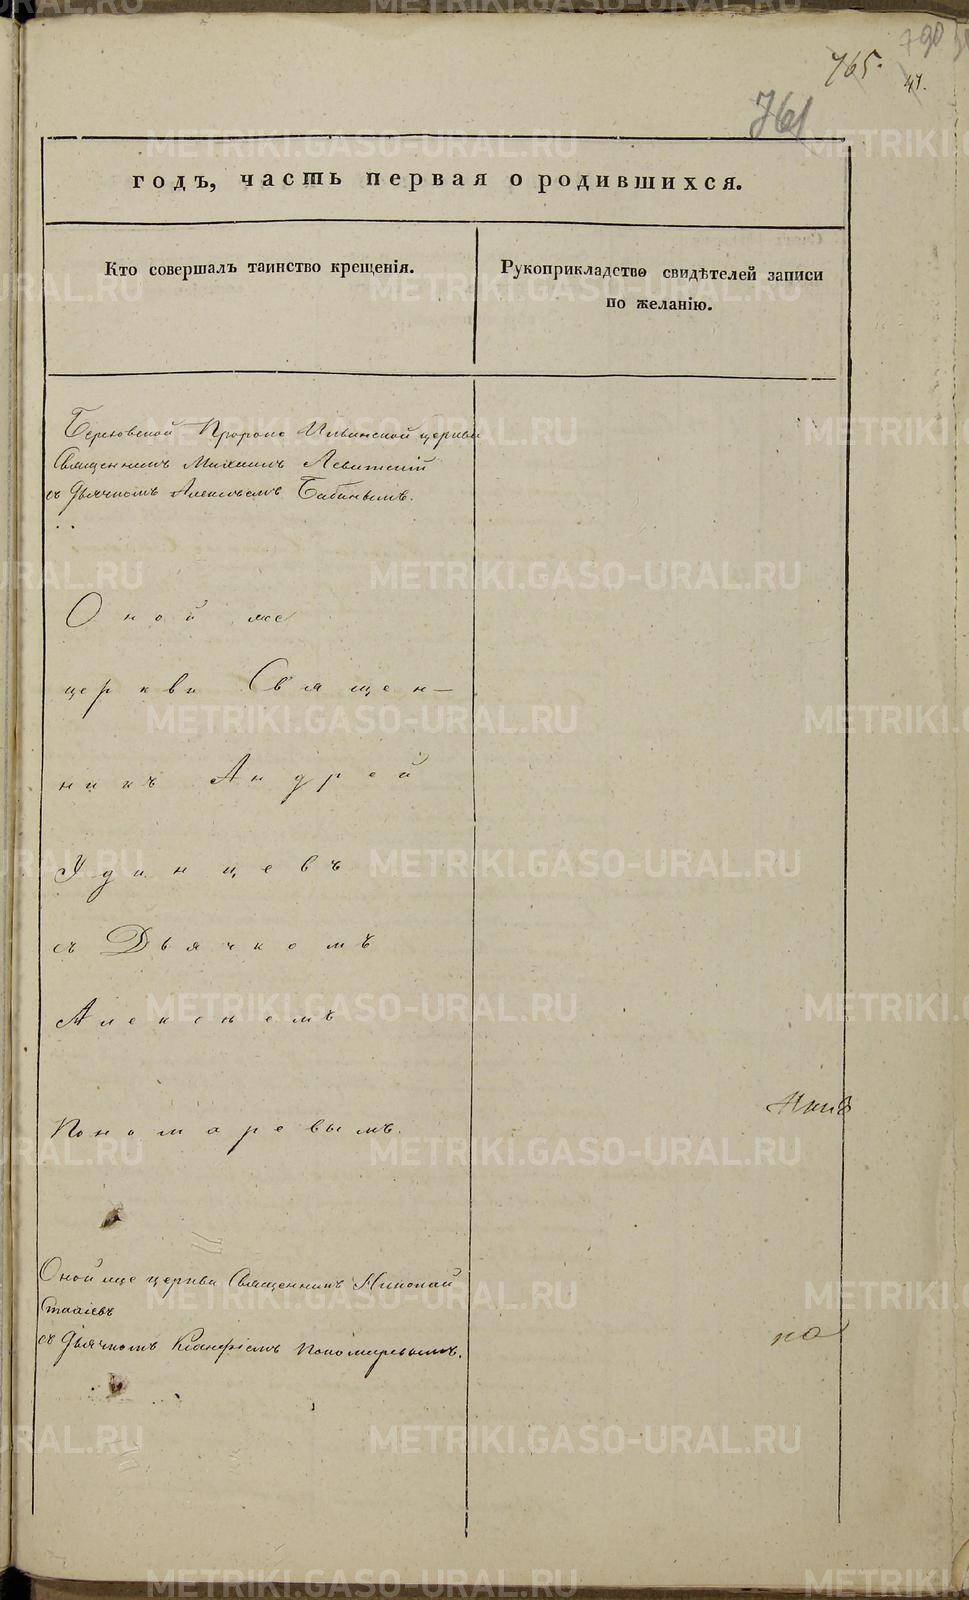 790
765.
47.
761
годъ, часть первая о родившихся.
Кто совершалъ таинство крещенія.
Рукоприкладство свидѣтелей записи
по желанію.
Пророко Ильинской церкви
Священникъ Михаилъ Левитскій
съ Дьячкомъ Алексѣемъ Бабинымъ.
Оной же
церкви Священ-
никъ Андрей
Удинцевъ
съ Дьячкомъ
Алексѣемъ
Пономаревымъ.
Оной же церкви Священникъ Николай
съ Дьячкомъ Пономаревымъ.
METRIKI.GASO-URAL.RU